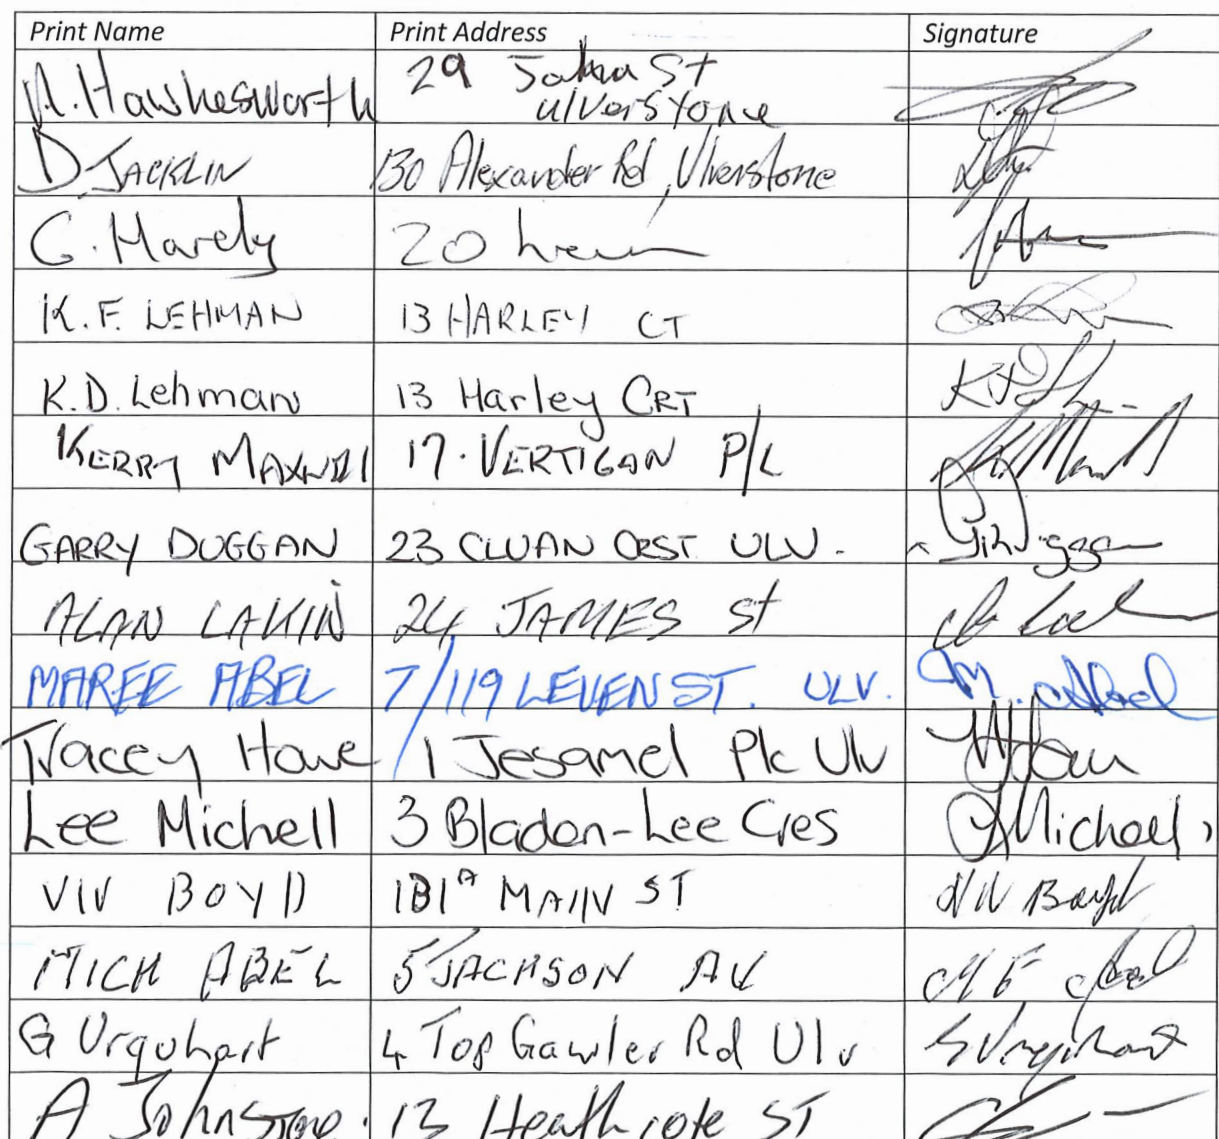 Print Name Print Address Signature
A. Hawkesworth 29 St
Ulverstone
D JACKLIN 130 Alexander Rd, Ulverstone
G. Hardy 20
K. F. LEHMAN 13 HARLEY CT
K.D. Lehman 13 Harley CRT
KERRY MAXWELL 17. VERTIGAN P/L
GARRY DUGGAN 23 CLUAN CRST ULV.
ALAN LAKIN 24 JAMES St
MAREE ABEL 7/119 LEVEN ST. ULV. M. Abel
Tracey Howe 1 Jesamel Plc Ulv
Lee Michell 3 Bladon-Lee Cres LMichell
VIV BOYD 181A MAIN ST Viv Boyd
MICH ABEL 5 JACKSON AV M F Abel
G Urquhart 4 Top Gawler Rd Ulv G Urquhart
A Johnstone. 13 Heathcote ST